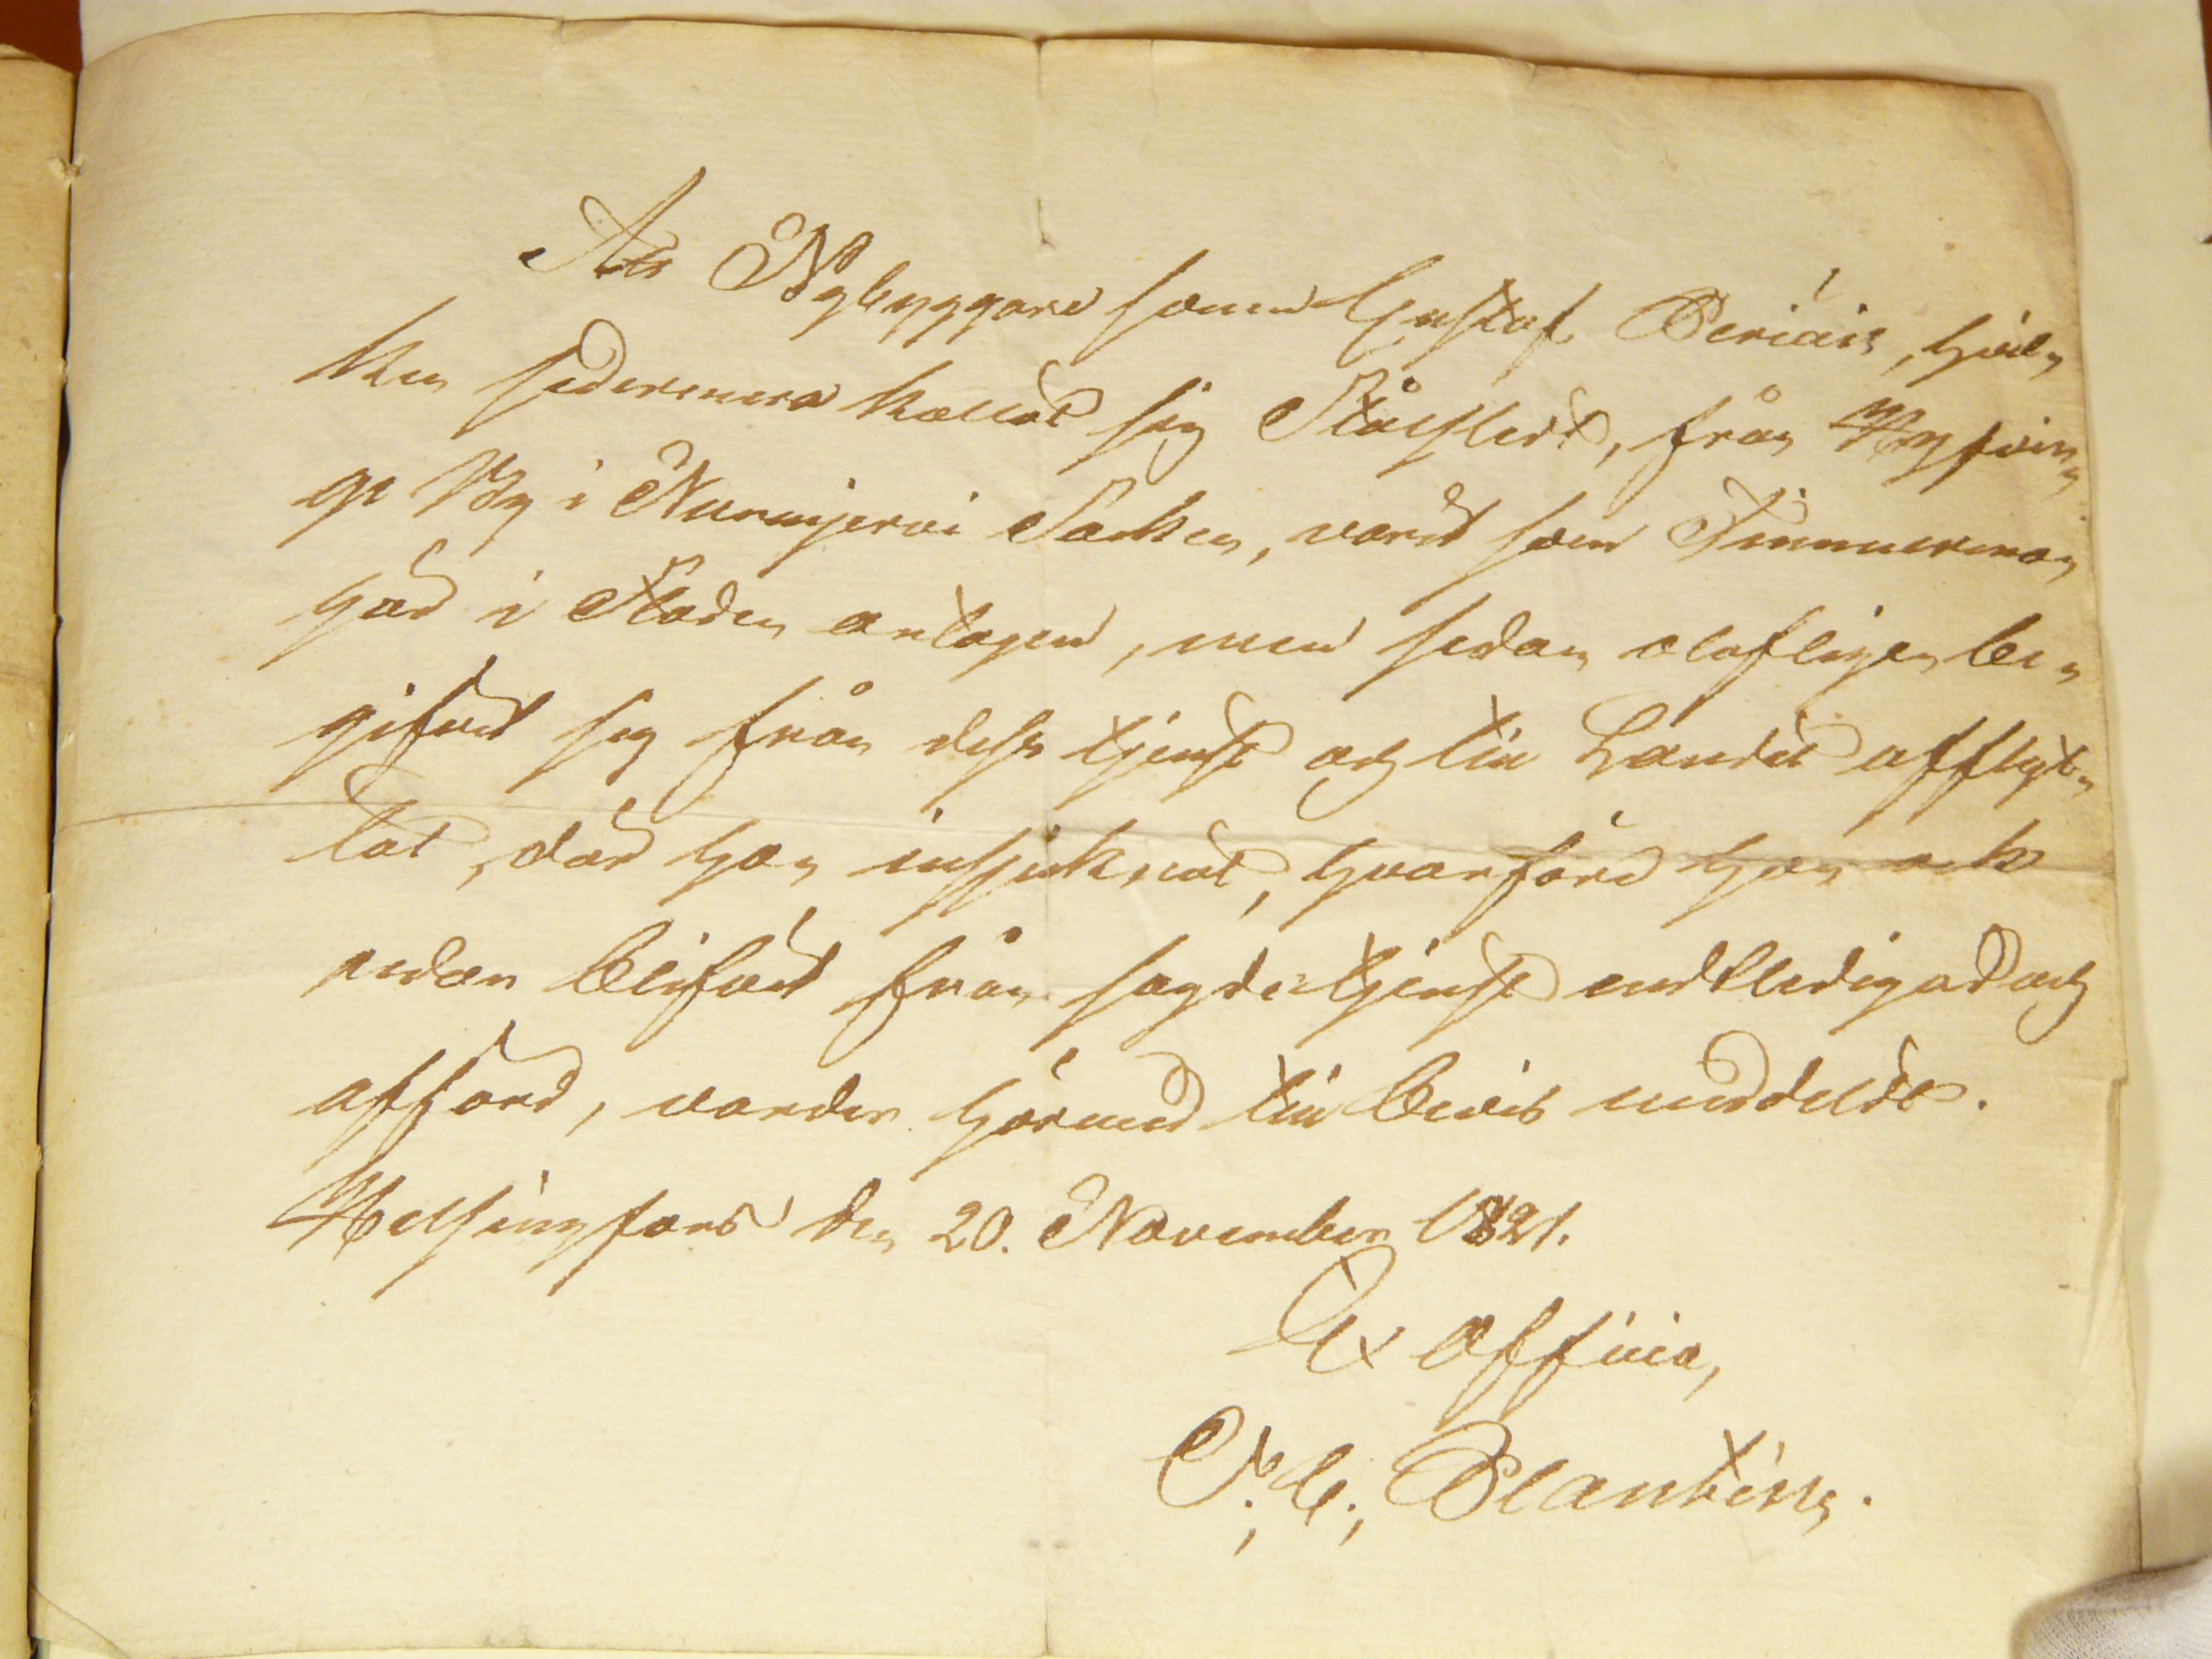 At Nybyggare sonen Gustaf Beriäis, hvil-
ken sedermera kallat sig Stålfledt, från Hyfvin-
ge By i Nurmijervi Socken, varit som Timmerman
här i Staden antagen, men sedan olofligen be-
gifvit sig från dess tjenst och till Landet afflyt-
tat, där han insjuknat, hvarföre han ock
redan blifvit från sagde tjenst endtledigad och
afförd, varder härmed till bevis meddeldt.
Helsingfors den 20. November 1821.
Ex officio,
C. Planting.